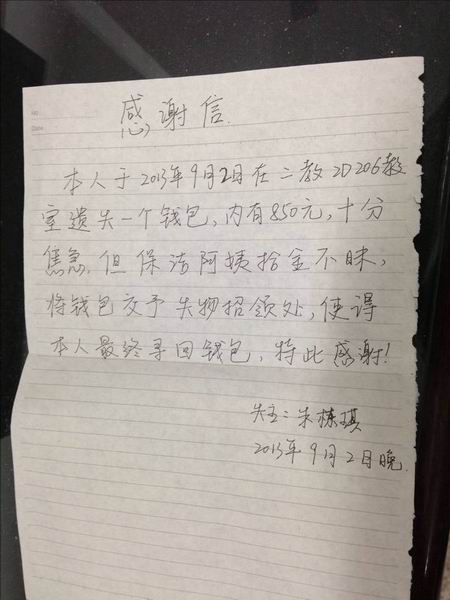 感谢信.
本人于2013年9月2日在二教2D206教
室遗失一个钱包,内有850元,十分
焦急.但保洁阿姨拾金不昧,
将钱包交予失物招领处,使得
本人最终寻回钱包,特此感谢!
失主:朱栋琪
2013年9月2日晚.